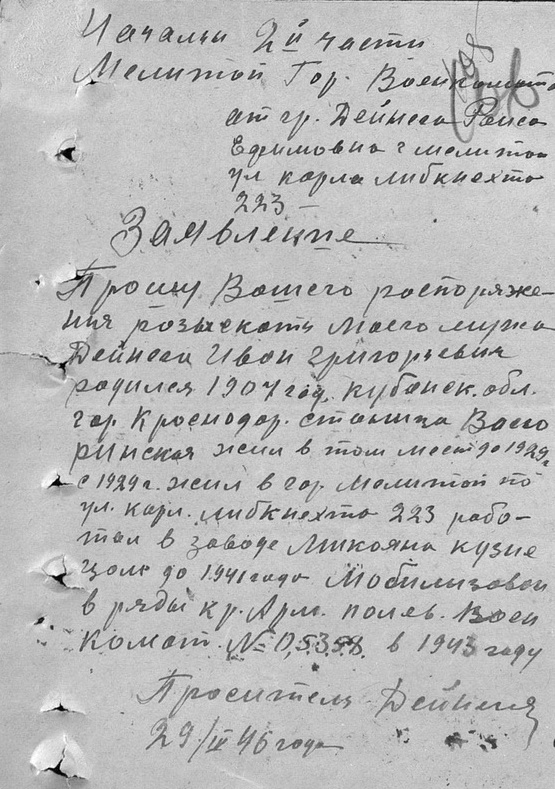 Начальн 2й части
Мелитой Гор. Военкомата
от гр. Дейнега Раиса
Ефимовна г мелитой
ул карла либкнехта
223 —
Заявление
Прошу Вашего распоряже-
ния розыскать моего мужа
Дейнега Иван Григорьевич
родился 1907 год. кубанск. обл.
гор. Кроснодар. станица
ринская жил в том мест до 1929г
с 1929 г. жил в гор. мелитой по
ул. карл. либкнехта 223 рабо-
тал в заводе Микояна кузне
цом до 1941 года Мобилизован
в ряды кр. Арм. полев. Воен
комат. № в 1943 году
Проситель Дейнега
29/ 46 года